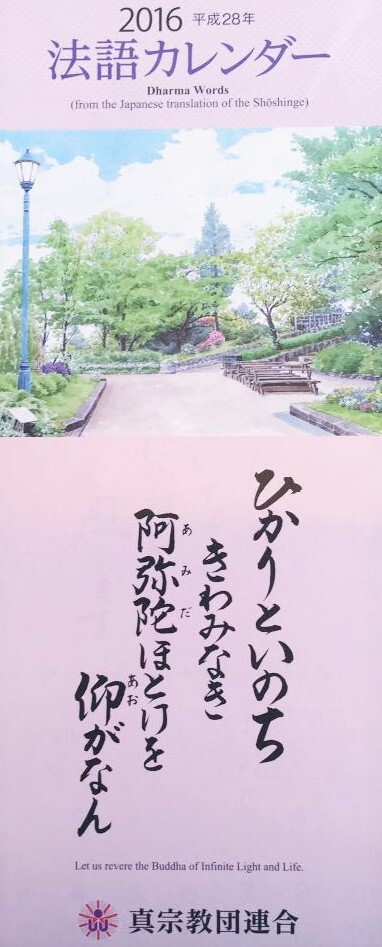 2016 平成28年
法語カレンダー
Dharma Words
(from the Japanese translation of the Shōshinge)
ひかりといのち
きわみなき
阿弥陀ほとけを
あみだ
仰がなん
あお
Let us revere the Buddha of Infinite Light and Life.
真宗教団連合